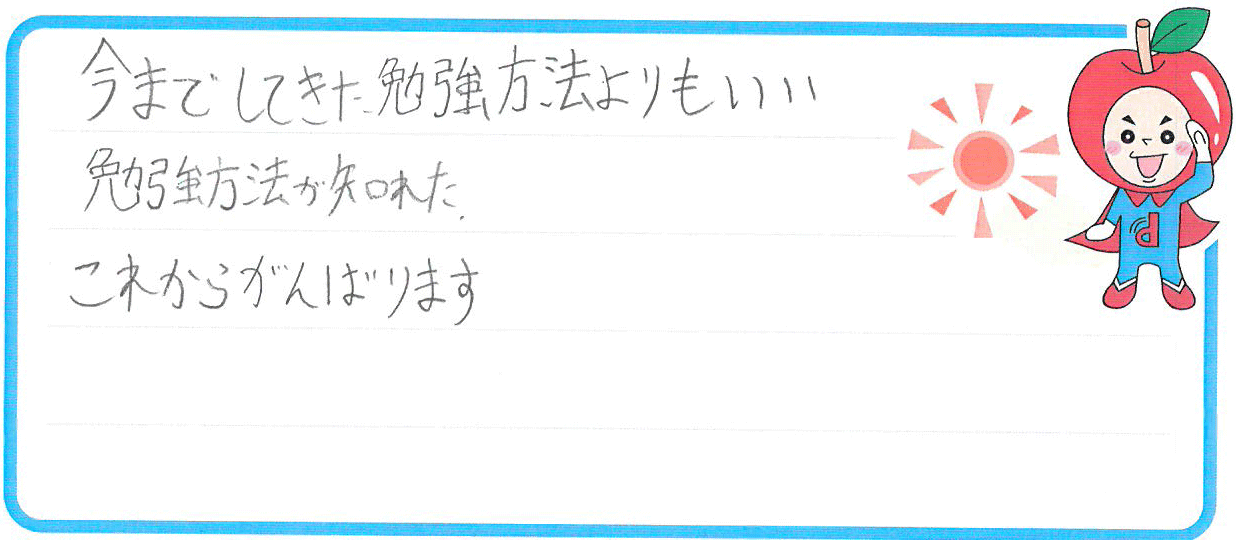 今までしてきた勉強方法よりもいい
勉強方法が知れた.
これからがんばります
d